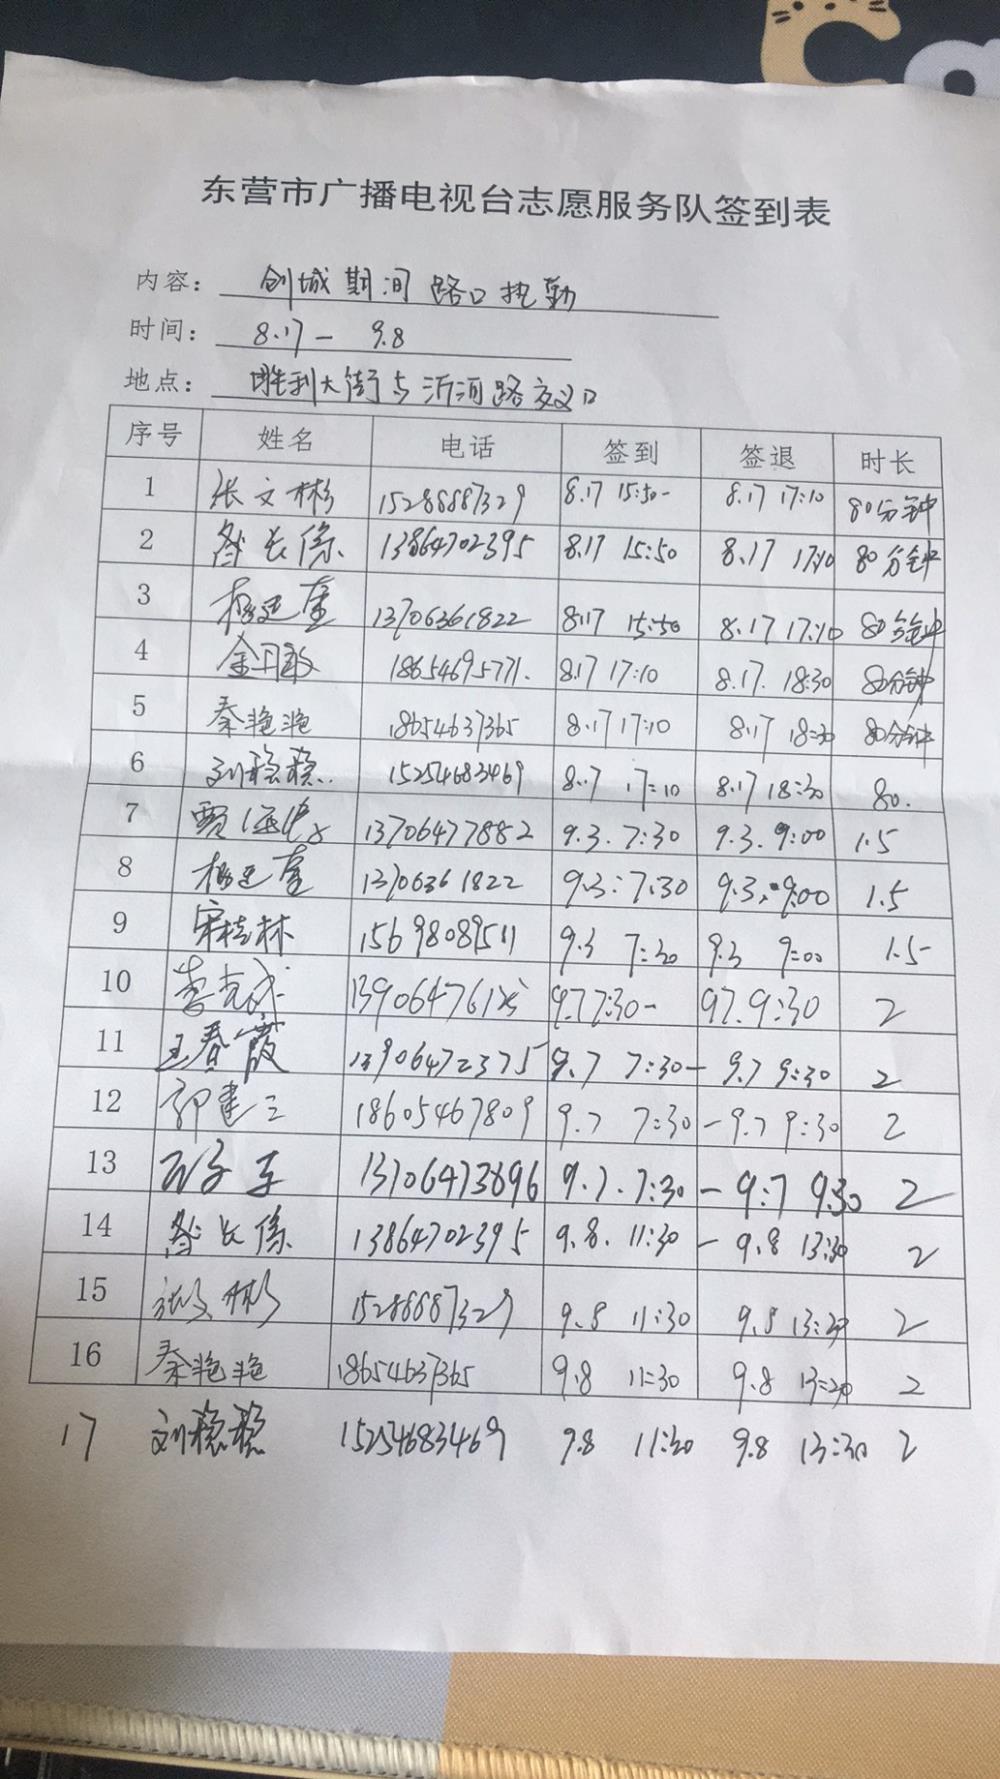 Ca
东营市广播电视台志愿服务队签到表
内容: 创城期间路口执勤
时间: 8.17 — 9.8
地点: 胜利大街与沂河路交叉口
序号 姓名 电话 签到 签退 时长
1 张文彬 15286887329 8.17 15:50- 8.17 17:10 80分钟
2 昝长绦 13864702395 8.17 15:50 8.17 17:10 80分钟
3 杨延奎 13706361822 8.17 15:50 8.17 17:10 80分钟
4 金月敏 18654695771. 8.17 17:10 8.17. 18:30 80分钟
5 秦艳艳 18654637365 8.17 17:10 8.17 18:30 80分钟
6 刘稳稳 15254683469 8.17 17:10 8.17 18:30 80.
7 贾 13706477882 9.3. 7:30 9.3. 9:00 1.5
8 杨延奎 13706361822 9.3: 7:30 9.3. 9:00 1.5
9 宋桂林 15698089511 9.3 7:30 9.3 9:00 1.5
10 9.7 7:30- 9.7. 9:30 2
11 王春霞 13906472375 9.7 7:30- 9.7 9:30 2
12 郭建三 18605467809 9.7 7:30 - 9.7 9:30 2
13 13706473696 9.7. 7:30 - 9:7 9:30 2
14 昝长绦 13864702395 9.8. 11:30 - 9.8 13:30 2
15 张文彬 15286887329 9.8 11:30 9.8 13:30 2
16 秦艳艳 18654637365 9.8 11:30 9.8 13:30 2
17 刘稳稳 15254683469 9.8 11:30 9.8 13:30 2